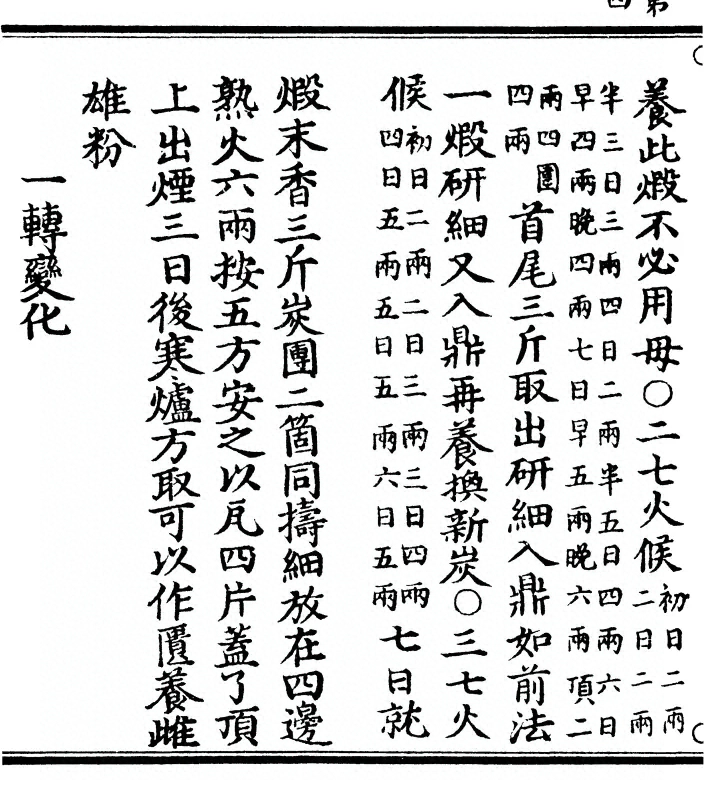 養此煅不必用母〇二七火候初日二兩二日二兩
半三日三兩四日二兩半五日四兩六日早四兩晚四兩七日早五兩晚六兩頂二
兩四圍四兩首尾三斤取出研細入鼎如前法
一煅研細又入鼎再養換新炭〇三七火
候初日二兩二日三兩三日四兩四日五兩五日五兩六日五兩七日就
煅末香三斤炭團二箇同擣細放在四邊
熟火六兩按五方安之以瓦四片蓋了頂
上出煙三日後寒爐方取可以作匱養雌
雄粉
一轉變化